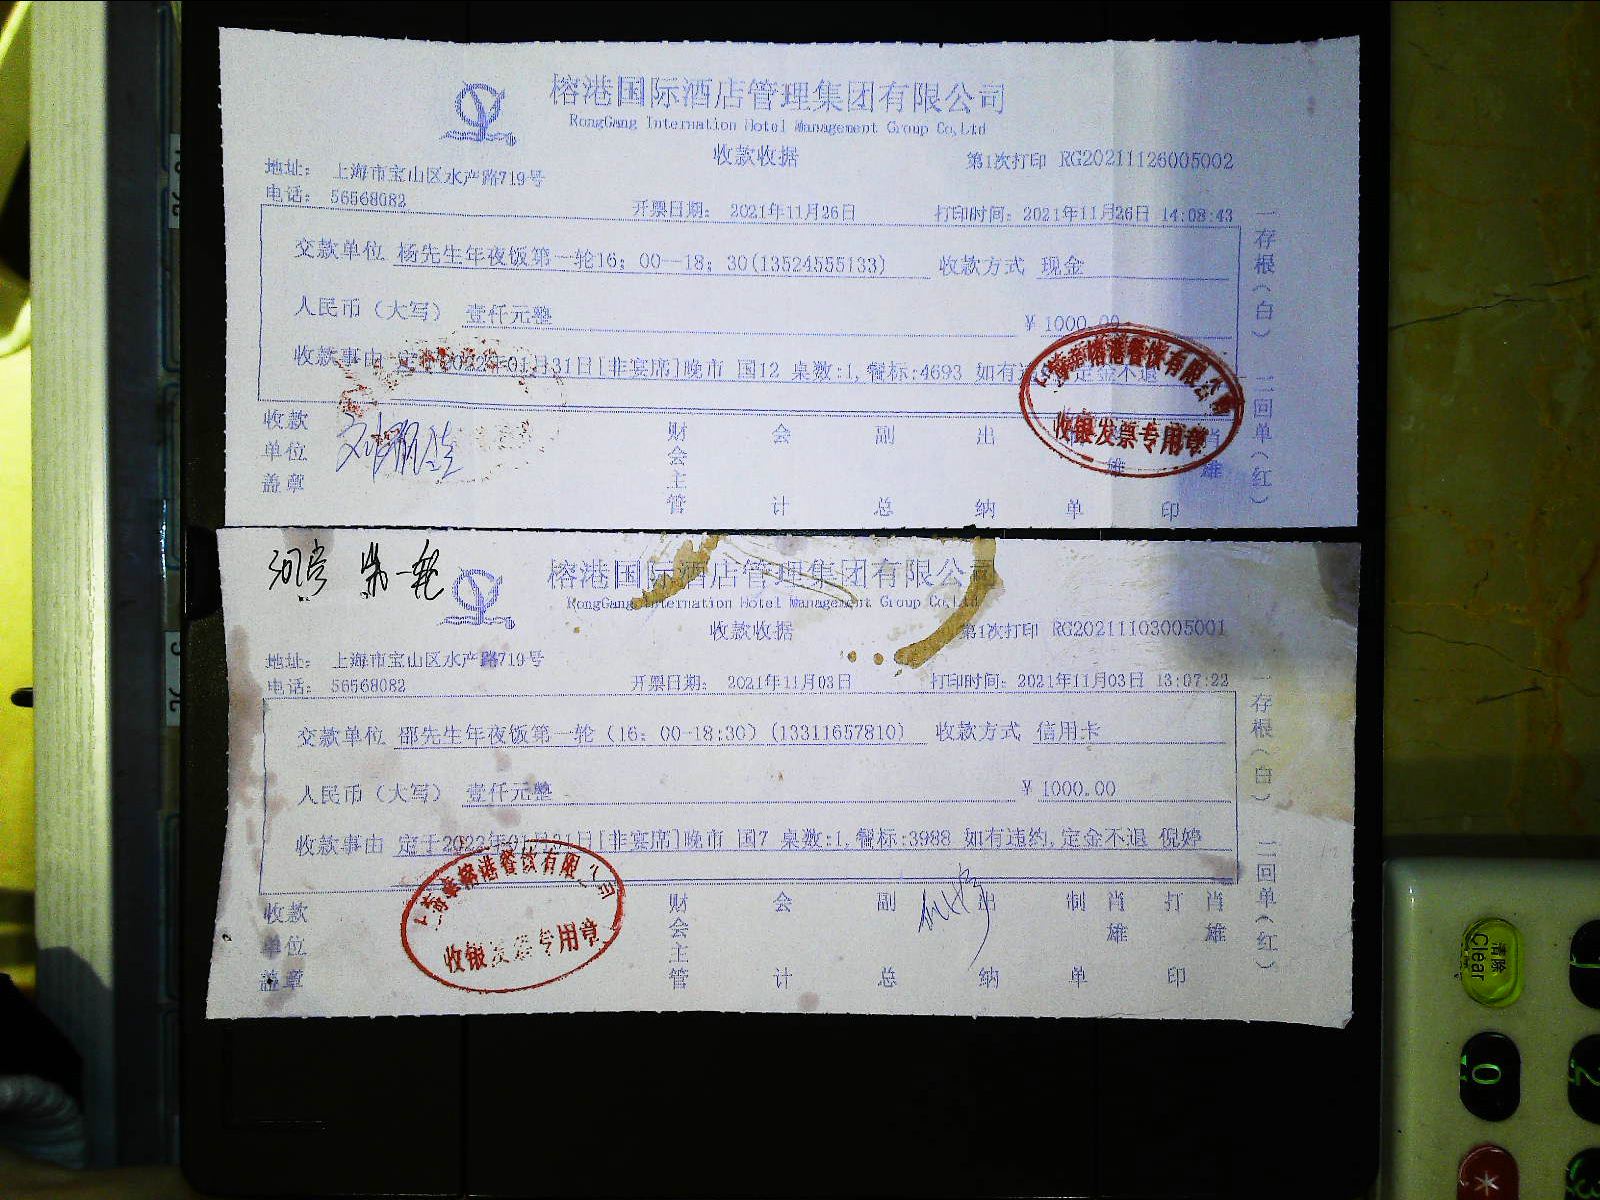 榕港国际酒店管理集团有限公司
RongGang Internation Hotel Management Group Co,Ltd
收款收据
第1次打印 RG20211126005002
地址： 上海市宝山区水产路719号
电话： 56568082
开票日期： 2021年11月26日
打印时间：2021年11月26日 14:08:43
交款单位 杨先生年夜饭第一轮16；00--18；30(13524555133) 收款方式 现金
人民币（大写） 壹仟元整 ¥ 1000.00
收款事由 定于2022年01月31日[非宴席]晚市 国12 桌数:1,餐标:4693 如有 定金不退
收款单位盖章 财会主管 会计 副总 出纳 单 雄 印 肖雄
上海 榕港餐饮有限公司
收银发票专用章
一存根（白） 二回单（红）
第一轮
榕港国际酒店管理集团有限公司
RongGang Internation Hotel Management Group Co,Ltd
收款收据
第1次打印 RG20211103005001
地址： 上海市宝山区水产路719号
电话： 56568082
开票日期： 2021年11月03日
打印时间：2021年11月03日 13:07:22
交款单位 邵先生年夜饭第一轮（16；00-18:30）(13311657810) 收款方式 信用卡
人民币（大写） 壹仟元整 ¥ 1000.00
收款事由 定于2022年01月31日[非宴席]晚市 国7 桌数:1,餐标:3988 如有违约,定金不退 倪婷
收款单位盖章 财会主管 会计 副总 出纳 制单 肖雄 打印 肖雄
上海 榕港餐饮有限公司
收银发票专用章
一存根（白） 二回单（红）
清除
Clear
0
*